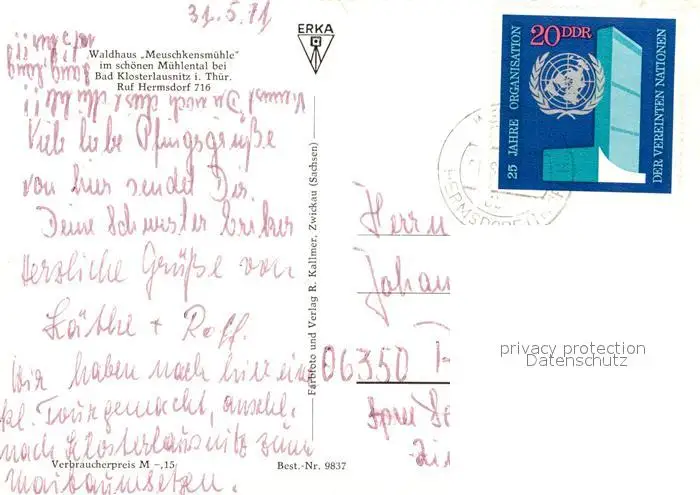 31.5.71
Waldhaus „Meuschkensmühle“
im schönen Mühlental bei
Bad Klosterlausnitz i. Thür.
Ruf Hermsdorf 716
ERKA
Viele liebe Pfingstgrüße
von hier sendet Dir
Deine Schwester
Herzliche Grüße von
Käthe + Rolf.
Wir haben nach hier eine
kl. Tour gemacht, anschl.
nach Klosterlausnitz zum
Maibaumsetzen.
Verbraucherpreis M –,15
Best.-Nr. 9837
Farbfoto und Verlag R. Kallmer, Zwickau (Sachsen)
20 DDR
25 JAHRE ORGANISATION
DER VEREINTEN NATIONEN
HERMSDORF
Herrn
Johan
06350
privacy protection
Datenschutz